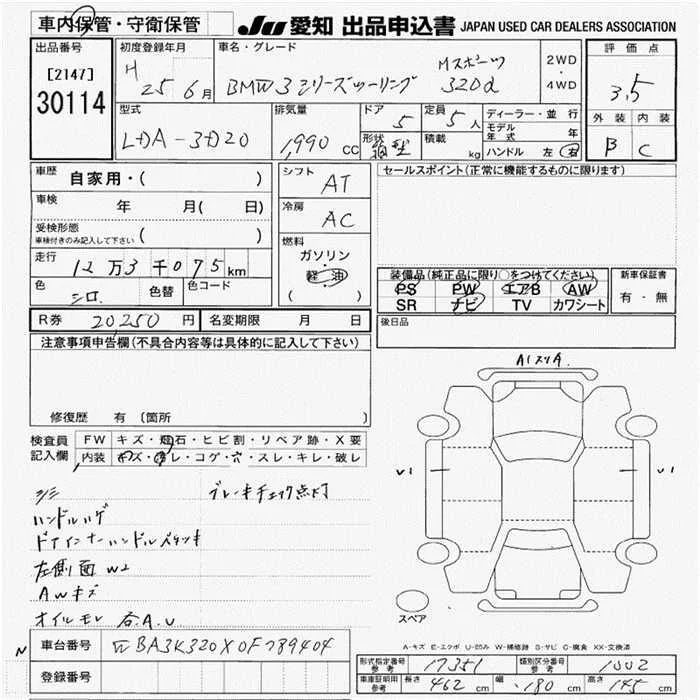 車内保管・守衛保管
JU 愛知 出品申込書 JAPAN USED CAR DEALERS ASSOCIATION
出品番号
[2147]
30114
初度登録年月
H 25 6月
車名・グレード
BMW3シリーズツーリング
Mスポーツ
320d
2WD
・
4WD
評価点
3.5
外装 内装
B C
型式
LDA-3D20
排気量
1,990 cc
ドア
5
定員
5 人
形状
箱型
積載
kg
ディーラー・並行
モデル年式 年
ハンドル 左 右
車歴
自家用・( )
車検
年 月( 日)
受検形態
車検付きのみ記入して下さい ( )
走行
12万3千075km
色
シロ
色替
色コード
シフト
AT
冷房
AC
燃料
ガソリン
軽・油
( )
セールスポイント(正常に機能するものに限ります)
装備品(純正品に限り○をつけてください)
PS PW エアB AW
SR ナビ TV カワシート
新車保証書
有・無
後日品
R券 20,250 円
名変期限 月 日
注意事項申告欄(不具合内容等は具体的に記入して下さい)
修復歴 有 〔箇所 〕
検査員
記入欄
FW キズ・飛石・ヒビ割・リペア跡・X要
内装 キズ・汚レ・コゲ・穴・スレ・キレ・破レ
ブレーキチェック点灯
ハンドルハゲ
ドアインナーハンドルベタツキ
左側面 W2
AWキズ
オイルモレ 各A.U
A1スリA.
U1
U1
スペア
A-キズ E-エクボ U-凹み W-補修跡 S-サビ C-腐食 XX-交換済
車台番号
WBA3K320X0F789404
N
登録番号
形式指定番号
参考
17351
類別区分番号
参考
1002
車庫証明用
参考
長さ 462 cm 幅 180 cm 高さ 145 cm